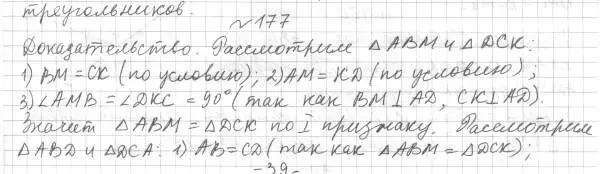 треугольников.
№177
Доказательство. Рассмотрим △ABM и △DCK:
1) BM=CK (по условию); 2) AM=KD (по условию);
3) ∠AMB=∠DKC=90° (так как BM⊥AD, CK⊥AD).
Значит △ABM=△DCK по I признаку. Рассмотрим
△ABD и △DCA: 1) AB=CD (так как △ABM=△DCK);
-39-